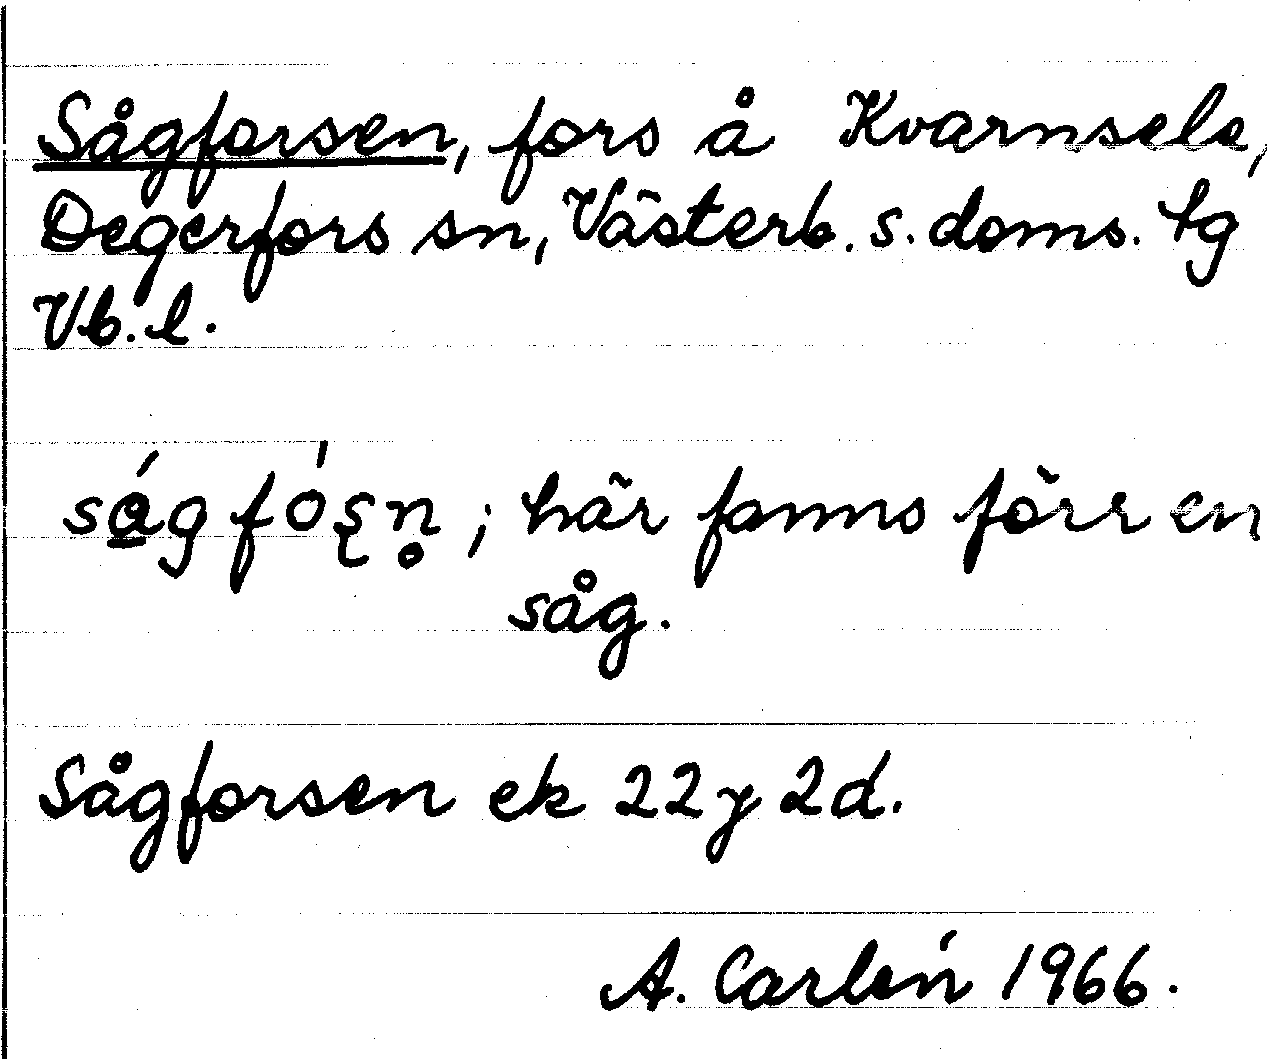 Sågforsen, fors å Kvarnsele,
Degerfors sn, Västerb. s. doms. tg
Vb. l.
ság fóʂn̥ ; här fanns förr en
såg.
Sågforsen ek 22y 2d.
A. Carlén 1966.